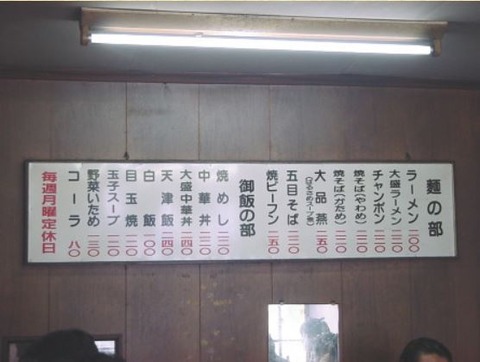 麺の部
ラーメン 二〇〇
大盛ラーメン 二二〇
チャンポン 二二〇
焼そば(やわめ) 二二〇
焼そば(かため) 二二〇
大品燕 二五〇
(はるさめスープ煮)
五目そば 二三〇
焼ビーフン 二五〇
御飯の部
焼めし 二二〇
中華丼 二二〇
大盛中華丼 二四〇
天津飯 二四〇
白飯 一〇〇
目玉焼 一二〇
玉子スープ 一二〇
野菜いため 一三〇
コーラ 八〇
毎週月曜定休日